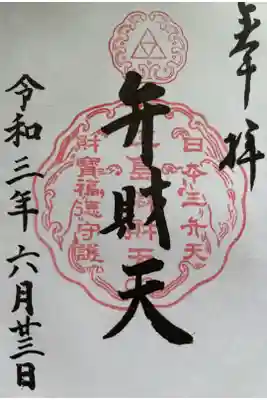 奉拝
日本三弁天
弁財天
財寶福徳守護
令和三年 六月廿三日